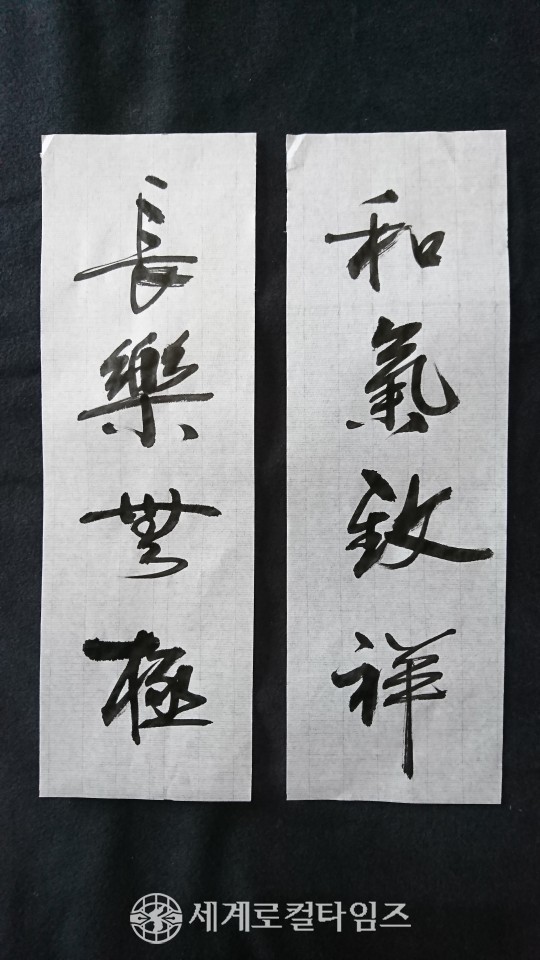 和氣致祥
長樂無極
세계로컬타임즈